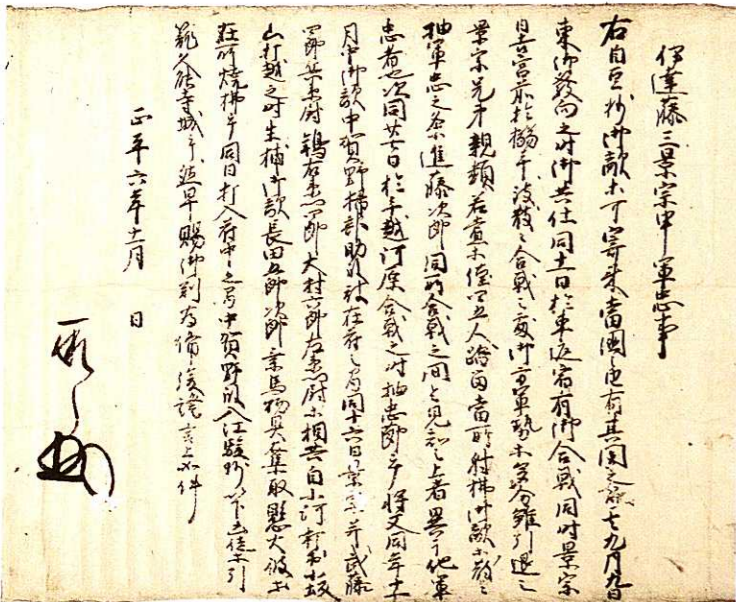 伊達藤三景宗申軍忠事
右自豆州御敵等可寄来当国之由有其聞之間去九月九日
東御発向之時御共仕同十一日於車返宿有御合戦同時景宗
日吉宮前於搦手致散々合戦之处御方軍勢等多分雖引退之
景宗兄弟親類若党等僅四五人踏留当所射払御敵等致
抽軍忠之条進藤次郎同所合戦之間令見知之上者異于他軍
忠者也次同廿七日於手越河原合戦之時抽忠節畢将又同年十一
月中御敵中賀野掃部助以下被在府之間同十六日景宗并武藤
四郎兵衛尉鶴左衛門四郎大村六郎左衛門尉等相共自小河
山打越之时生捕御敵長田五郎次郎乗馬物具奪取懸火彼等
在所焼払畢同日打入府中之处中賀野以下入江駿州以下凶徒等引
籠久能寺城畢然早賜御判為備後証言上如件
正平六年十二月 日